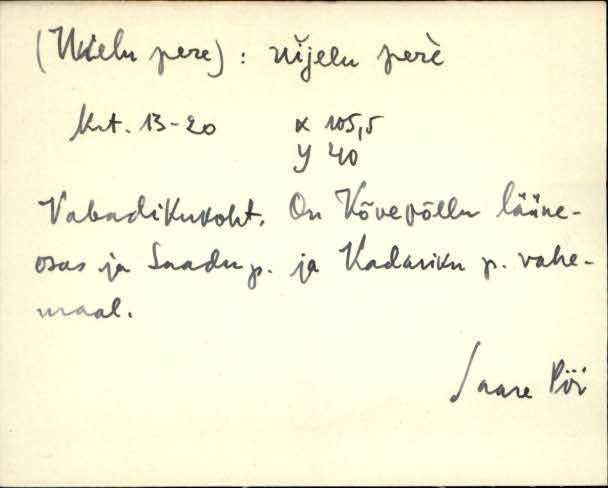 (Uielu pere) : uĭjelu perè
Krt. 13-20 x 105,5
y 40
Vabadikukoht. On Kõvepõllu lääne-
osas ja Saadu p. ja Kadariku p. vahe-
maal.
Saare Pöi